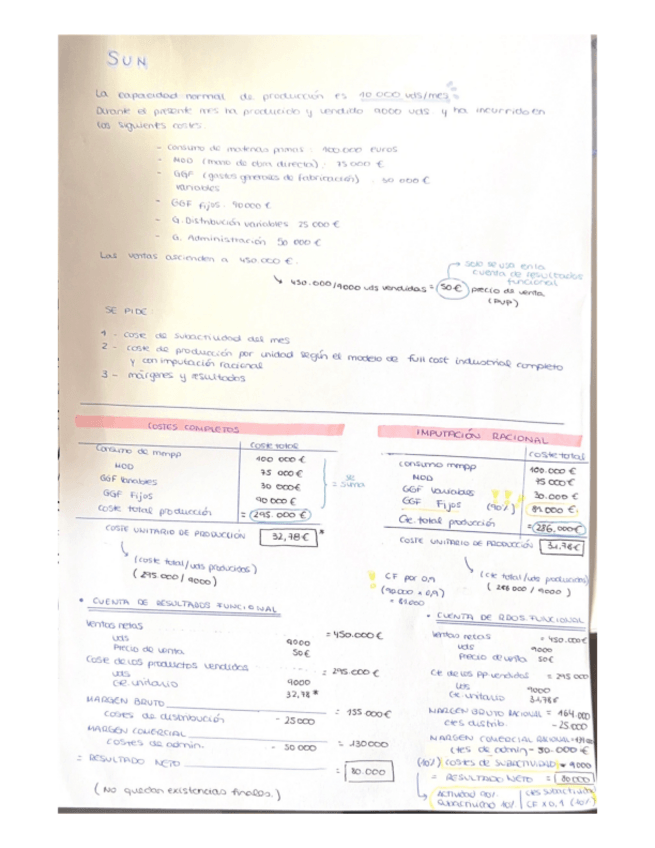 SUN
La capacidad normal de producción es 10 000 uds/mes
Durante el presente mes ha producido y vendido 9000 uds y ha incurrido en
los siguientes costes:
- Consumo de materias primas: 100.000 euros
- MOD (mano de obra directa): 75 000 €
- GGF (gastos generales de fabricación) : 30 000 €
variables
- GGF fijos: 90000 €
- G. Distribución variables 25 000 €
- G. Administración 50 000 €
Las ventas ascienden a 450.000 €.
solo se usa en la
cuenta de resultados
funcional
450.000/9000 uds vendidas = 50 € precio de venta
(PVP)
SE PIDE
1 - coste de subactividad del mes
2 - coste de producción por unidad según el modelo de full cost industrial completo
y con imputación racional
3 - márgenes y resultados
COSTES COMPLETOS
Coste total
Consumo de mmpp 100 000 €
MOD 75 000 €
GGF Variables 30 000€
GGF Fijos 90 000 €
se
= suma
Coste total producción = (295.000 €)
COSTE UNITARIO DE PRODUCCIÓN 32,78 € *
(coste total/uds producidas)
(295.000 / 9000)
• CUENTA DE RESULTADOS FUNCIONAL
Ventas netas = 450.000 €
uds 9000
Precio de venta 50€
Coste de los productos vendidos = 295.000 €
uds 9000
Cte. unitario 32,78 *
MARGEN BRUTO = 155 000€
costes de distribución - 25000
MARGEN COMERCIAL = 130000
costes de admin. - 50 000
= RESULTADO NETO = 80.000
(No quedan existencias finales.)
IMPUTACIÓN RACIONAL
coste total
consumo mmpp 100.000 €
MOD 75 000 €
GGF Variables 30.000 €
GGF Fijos (90%) 81.000 €
Cte. total producción = 286.000€
COSTE UNITARIO DE PRODUCCIÓN 31.78€
(cte total/uds producidas)
(286 000 / 9000)
CF por 0,9
(90.000 x 0,9)
= 81000
• CUENTA DE RDOS. FUNCIONAL
Ventas netas = 450.000€
uds 9000
Precio de venta 50€
Cte de los pp vendidos = 295 000
uds 9000
Cte. unitario 31,78€
MARGEN BRUTO RACIONAL = 164.000
ctes distrib. - 25.000
MARGEN COMERCIAL RACIONAL
Ctes de admin - 50.000 €
(10%) costes de SUBACTIVIDAD 9000
= RESULTADO NETO = 80000
ACTIVIDAD 90%
SUBACTIVIDAD 10%
CTES SUBACTIVIDAD
CF x 0,1 (10%)